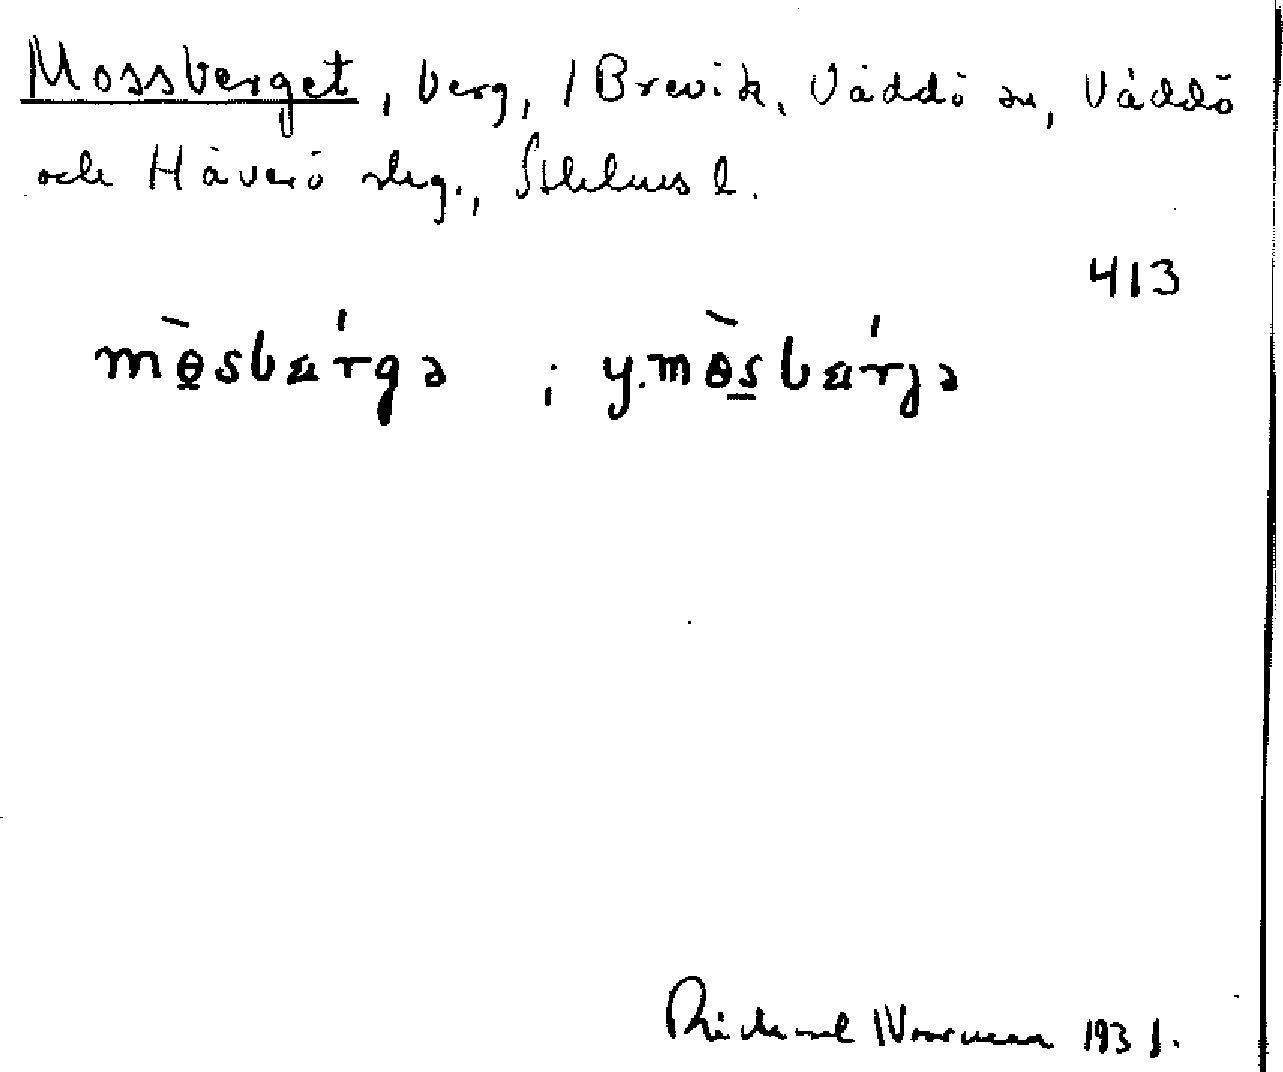 Mossberget, berg, / Brevik, Väddö sn, Väddö
och Häverö skg., Sthlms l.
413
mɵ̀sbæ̀rgə ; y. mɵ̀sbæ̀rjə
Richard Norrman 1931.